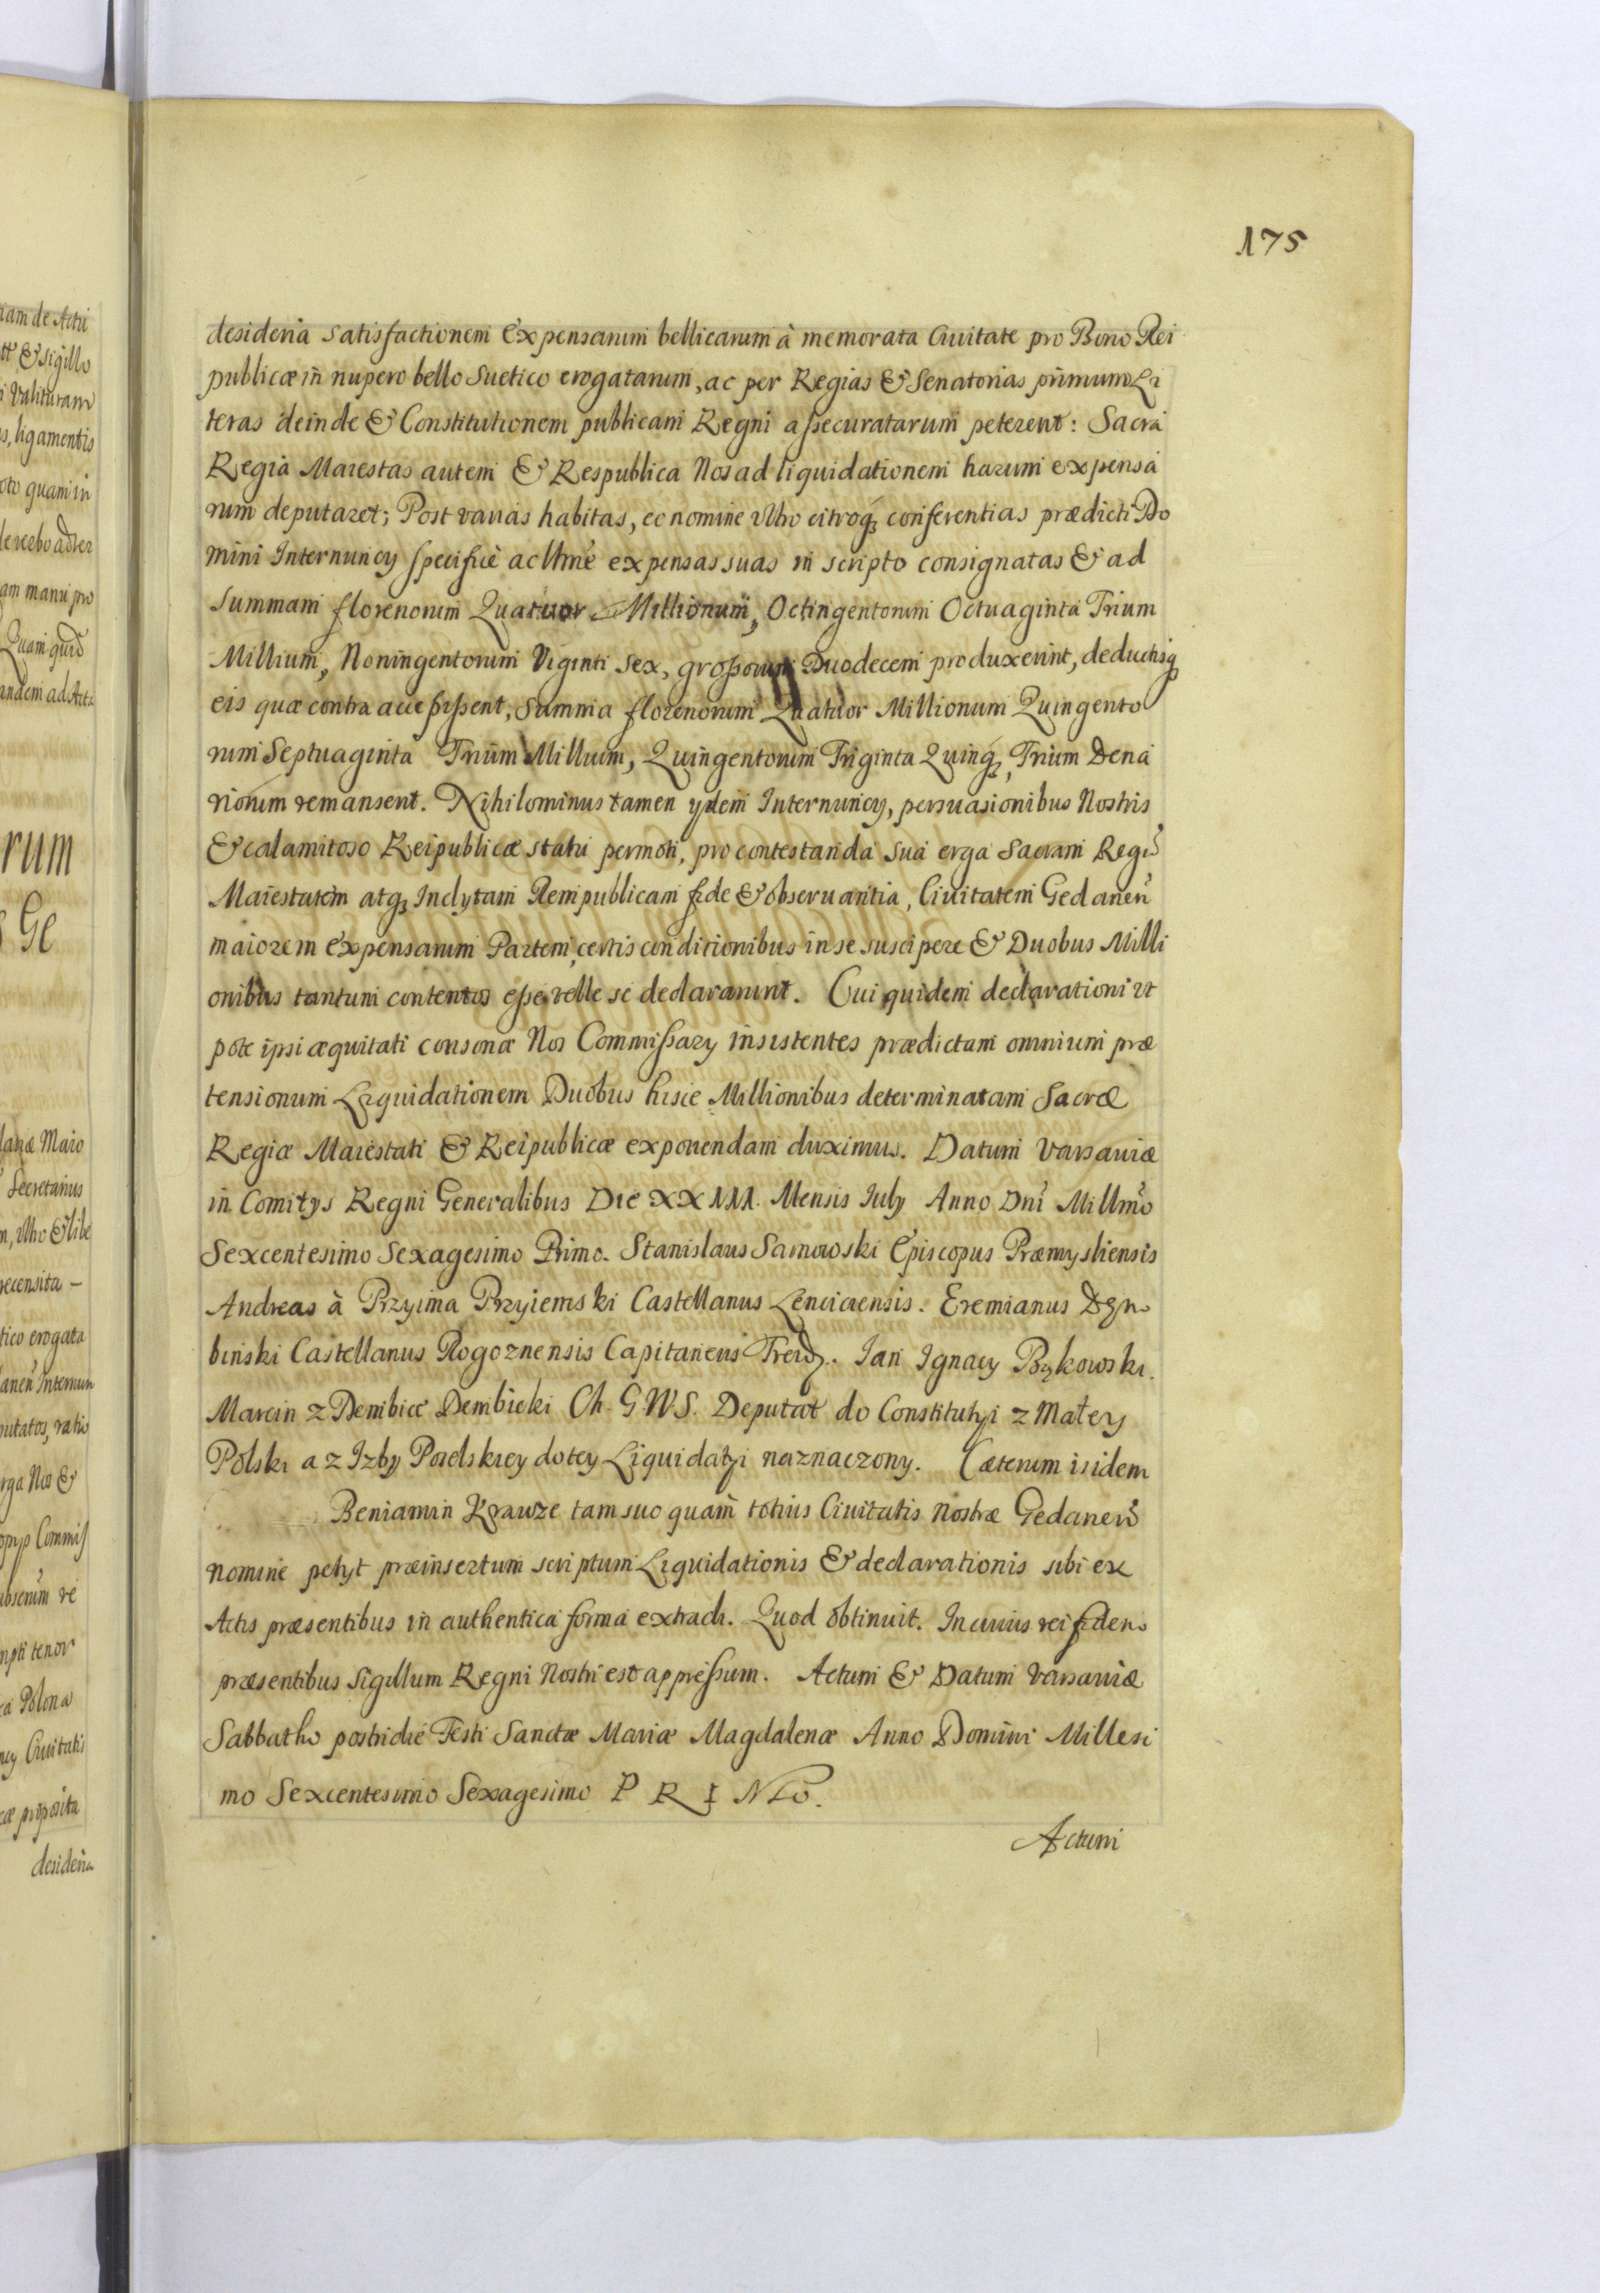 175
desideria satisfactionem expensarum bellicarum à memorata Ciuitate pro Bono Rei
publicæ in nupero bello Suetico erogatarum, ac per Regias & Senatorias primum Li
teras deinde & Constitutionem publicam Regni assecuratarum peterent: Sacra
Regia Maiestas autem & Respublica Nos ad liquidationem harum expensa
rum deputaret; Post varias habitas, eo nomine vltro citroq; conferentias prædicti Do
mini Internuncy specificè ac llmē expensas suas in scripto consignatas & ad
summam florenorum Quatuor Millionum, Octingentorum Octuaginta Trium
Millium, Noningentorum Viginti Sex, grossorum Duodecem produxerint, deductisq;
eis quæ contra accessissent, Summa florenorum Quatuor Millionum Quingento
rum Septuaginta Trium Millium, Quingentorum Triginta Quinq;, Trium Dena
riorum remanserit. Nihilominus tamen ydem Internuncy, persuasionibus Nostris
& calamitoso Reipublicæ statu permoti, pro contestanda sua erga Sacram Regiā
Maiestatem atq; Inclytam Rempublicam fide & obseruantia, Ciuitatem Gedaneñ
maiorem expensarum Partem, certis conditionibus in se suscipere & Duobus Milli
onibus tantum contentos esse velle se declararunt. Cui quidem declarationi vt
pote ipsi æquitati consonæ Nos Commissary insistentes prædictam omnium præ
tensionum Liquidationem Duobus hisce Millionibus determinatam Sacræ
Regiæ Maiestati & Reipublicæ exponendam duximus. Datum Varsauiæ
in Comitys Regni Generalibus Die XXIIII. Mensis July Anno Dni Millmo
Sexcentesimo Sexagesimo Primo. Stanislaus Sarnowski Episcopus Præmysliensis
Andreas à Przyima Przyiemski Castellanus Lenciciensis. Eremianus
binski Castellanus Rogoznensis Capitaneus. Ian Ignacy Bąkowski.
Marcin z Dembice Dembicki Ch. G W S. Deputat do Constitutyi z Małey
Polski a z Izby Poselskiey do tey Liquidatyi naznaczony. Cæterum isidem
Beniamin Krauze tam suo quam totius Ciuitatis Nostræ Gedaneñ
nomine petyt præinsertum scriptum Liquidationis & declarationis sibi ex
Actis præsentibus in authentica forma extradi. Quod obtinuit. In cuius rei fidem
præsentibus Sigillum Regni Nostri est appressum. Actum & Datum Varsauiæ
Sabbatho postridie Festi Sanctæ Mariæ Magdalenæ Anno Domini Millesi
mo Sexcentesimo Sexagesimo P R I Mo.
Actum